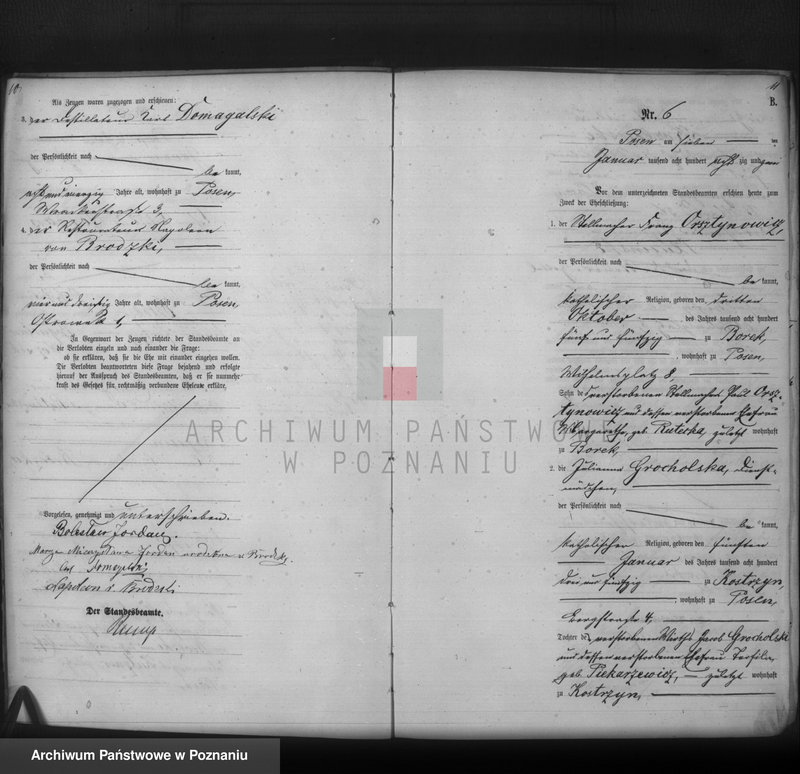 10.
Als Zeugen waren zugezogen und erschienen:
3. der Destillateur Karl Domagalski
der Persönlichkeit nach
be kannt,
acht und vierzig Jahre alt, wohnhaft zu Posen,
3,
4. der Restaurateur Napoleon
von Brodzki,
der Persönlichkeit nach
be kannt,
vier und dreißig Jahre alt, wohnhaft zu Posen,
Ostrowek 1,
In Gegenwart der Zeugen richtete der Standesbeamte an
die Verlobten einzeln und nach einander die Frage:
ob sie erklären, daß sie die Ehe mit einander eingehen wollen.
Die Verlobten beantworteten diese Frage bejahend und erfolgte
hierauf der Ausspruch des Standesbeamten, daß er sie nunmehr
kraft des Gesetzes für rechtmäßig verbundene Eheleute erkläre.
Vorgelesen, genehmigt und unterschrieben.
Bolesław Jordan.
Jordan v Brodzki.
Der Standesbeamte.
11
B.
Nr. 6
Posen am sieben ten
Januar tausend acht hundert acht zig und
Vor dem unterzeichneten Standesbeamten erschien heute zum
Zweck der Eheschließung:
1. der Stellmacher Franz Orsztynowicz,
der Persönlichkeit nach
be kannt,
katholischer Religion, geboren den dritten
Oktober des Jahres tausend acht hundert
fünf und fünfzig zu Borek,
, wohnhaft zu Posen,
Wilhelmsplatz 8,
Sohn des verstorbenen Stellmachers Paul Orsz-
tynowicz und dessen verstorbener Ehefrau
Margarethe, geb. Ruteska, zuletzt wohnhaft
zu Borek,
2. die Julianna Grocholska, Dienst-
mädchen,
der Persönlichkeit nach
be kannt,
katholischer Religion, geboren den fünften
Januar des Jahres tausend acht hundert
drei und fünfzig zu Kostrzyn,
, wohnhaft zu Posen,
Bergstraße 4,
Tochter des verstorbenen Wirths Jacob Grocholski
und dessen verstorbener Ehefrau Teofila,
geb. Piekarzewicz, zuletzt wohnhaft
zu Kostrzyn,
ARCHIWUM PAŃSTWOWE
W POZNANIU
Archiwum Państwowe w Poznaniu